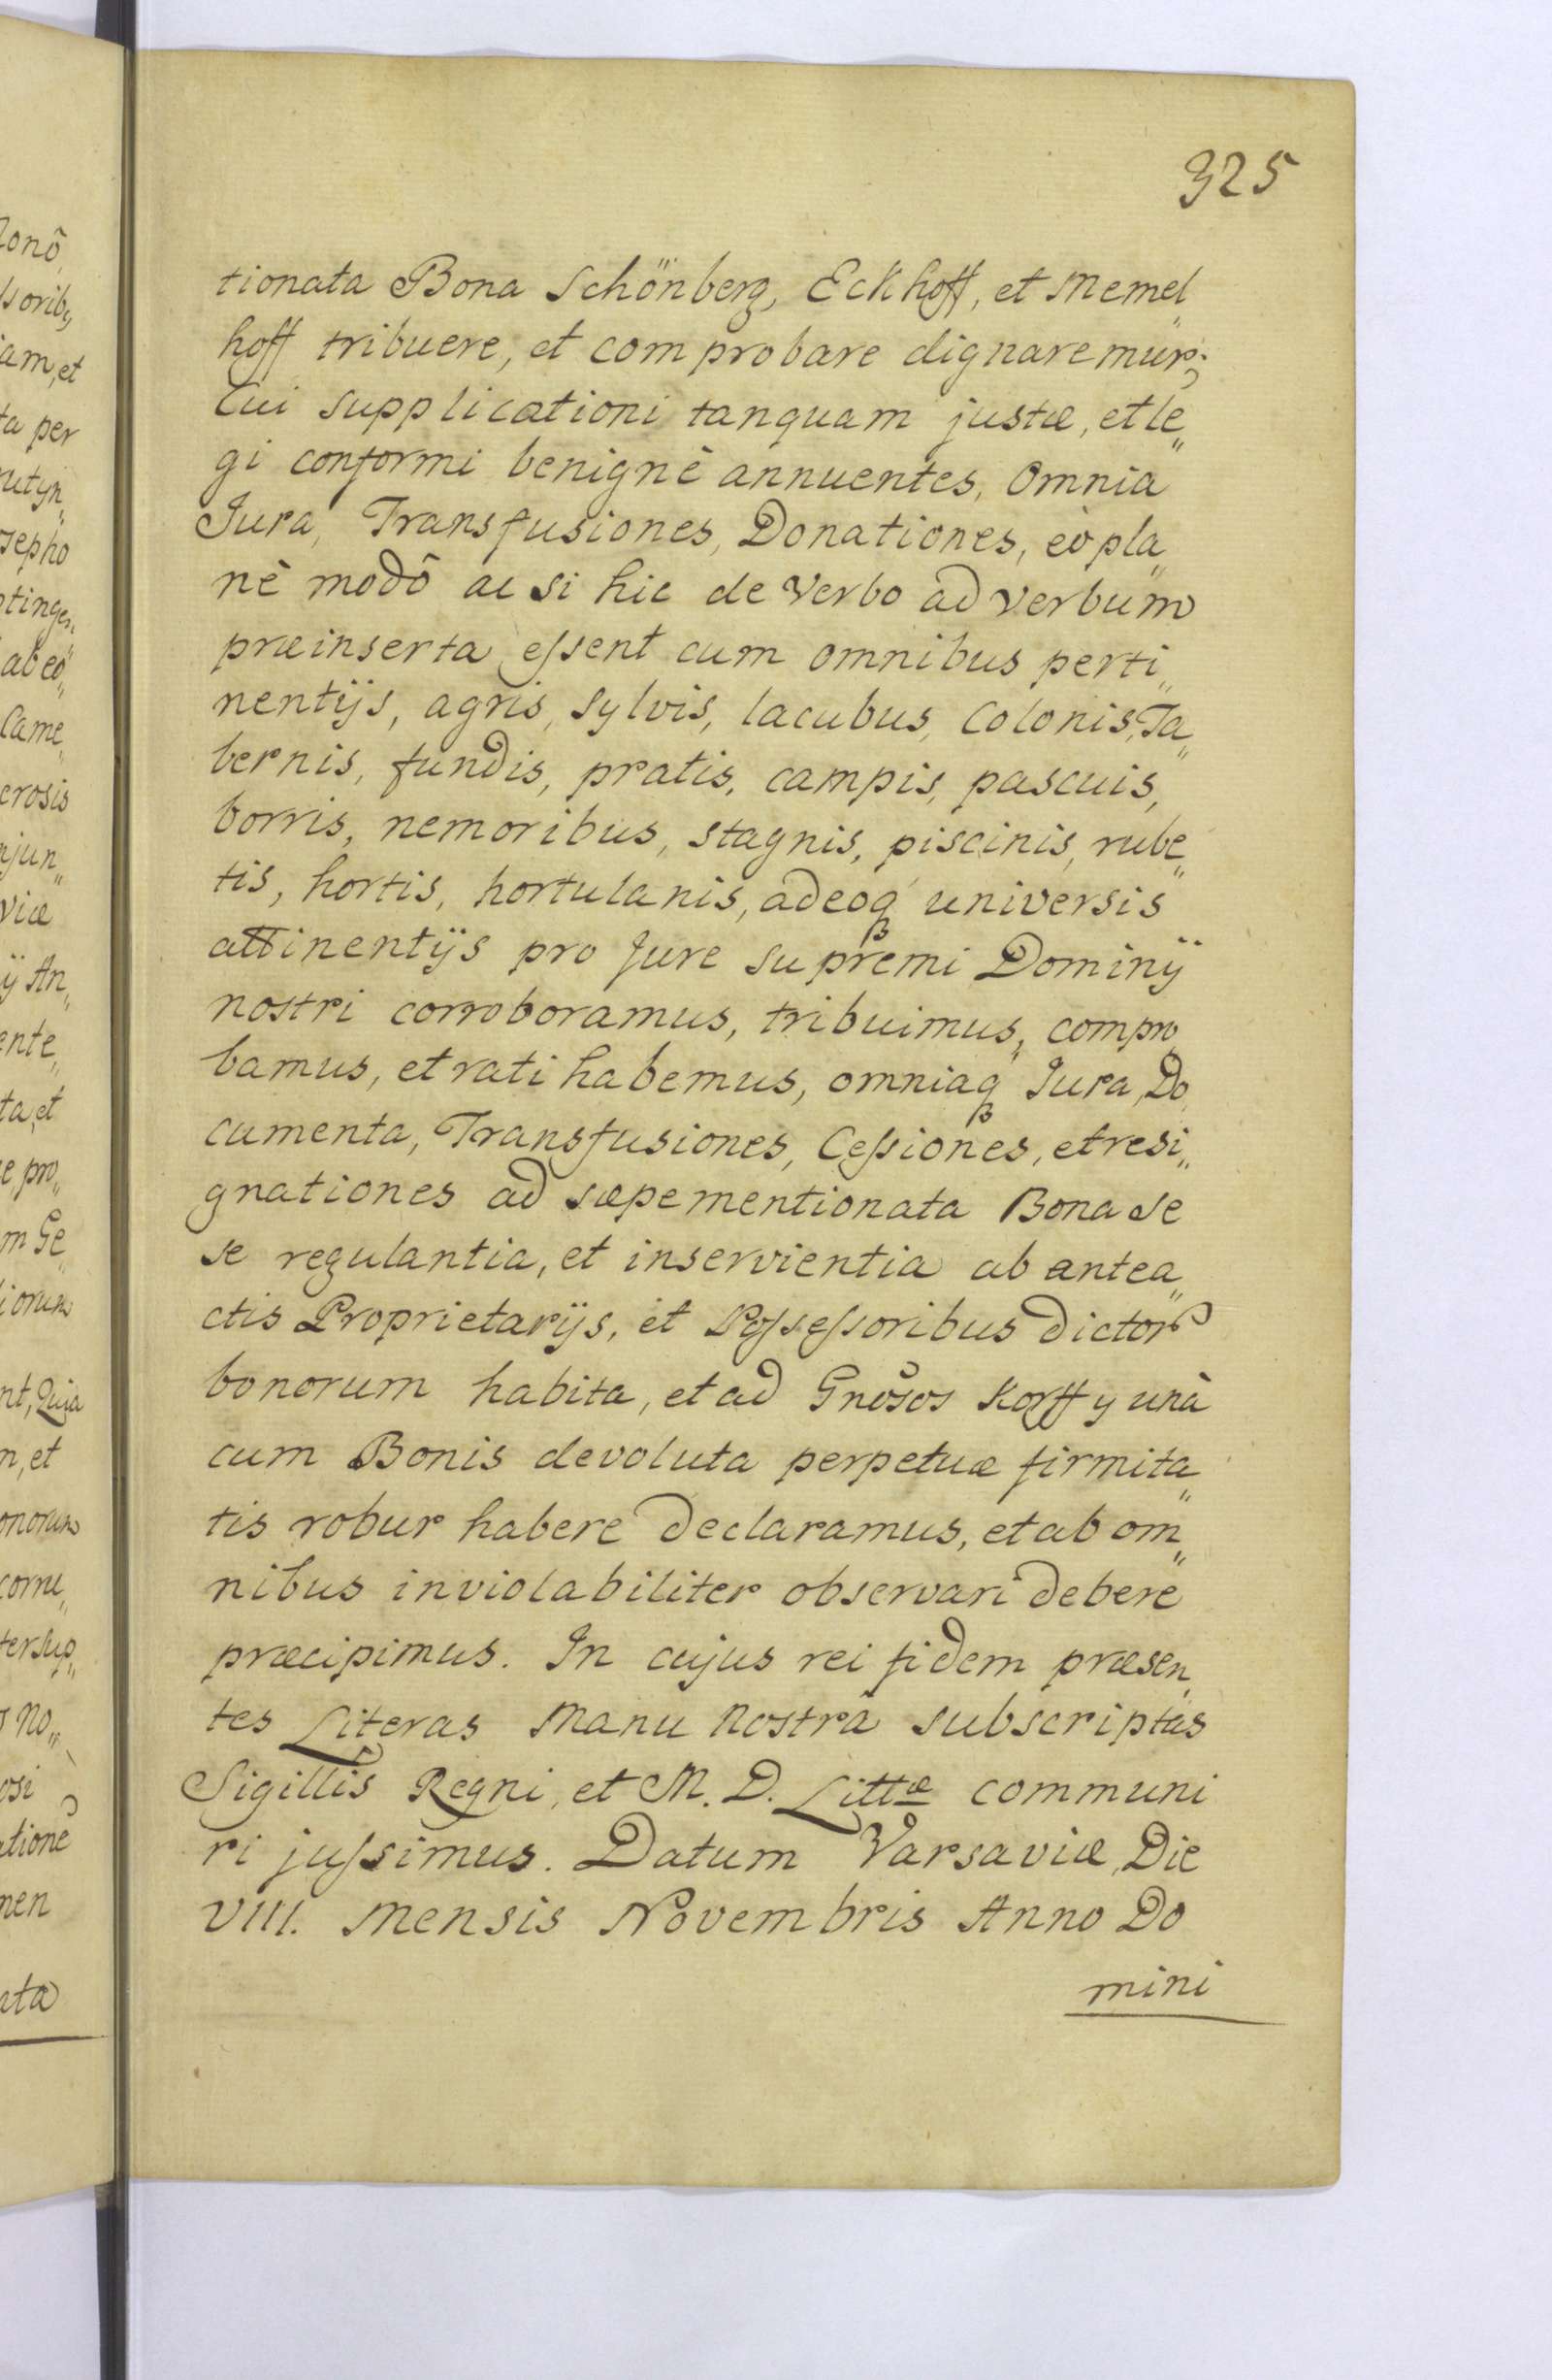 325
tionata Bona Schönberg, Eckhoff, et Memel„
hoff tribuere, et comprobare dignaremur;
Cui supplicationi tanquam justæ, et le„
gi conformi benignè annuentes, Omnia
Jura, Transfusiones, Donationes, eò pla„
nè modô ac si hic de Verbo ad verbum
præinserta eſsent cum omnibus perti„
nentijs, agris, sylvis, lacubus, Colonis, Ta„
bernis, fundis, pratis, campis, pascuis,
borris, nemoribus, stagnis, piscinis, rube„
tis, hortis, hortulanis, adeoq́ universis
attinentijs pro Jure supremi Dominÿ
nostri corroboramus, tribuimus, compro„
bamus, et rati habemus, omniaq́ Jura, Do„
cumenta, Transfusiones, Ceſsiones, et resi„
gnationes ad sæpementionata Bona se
se regulantia, et inservientia ab antea„
ctis Proprietarijs, et Poſseſsoribus dictor
bonorum habita, et ad Gnosos Korffy unà
cum Bonis devoluta perpetuæ firmita„
tis robur habere declaramus, et ab om„
nibus inviolabiliter observari debere
præcipimus. In cujus rei fidem præsen„
tes Literas Manu Nostrâ subscriptas
Sigillis Regni, et M. D. Littæ communi
ri juſsimus. Datum Varsaviæ, Die
VIII. Mensis Novembris Anno Do
mini